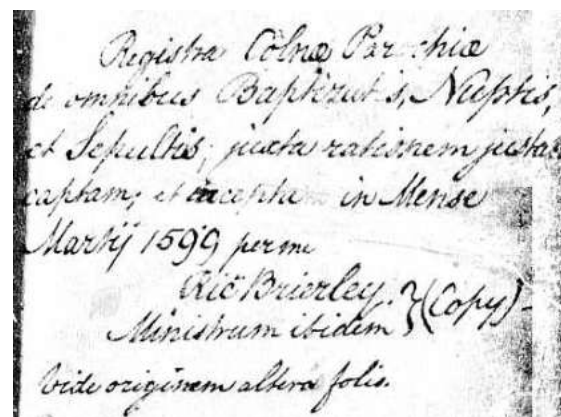 Registra Colnæ Parochiæ
de omnibus Baptizatis, Nuptis,
et Sepultis; juxta rationem justam
captam; et incepta in Mense
Martij 1599 per me
Ric Brierley. } (Copy)
Ministrum ibidem
Vide originem altera folio.